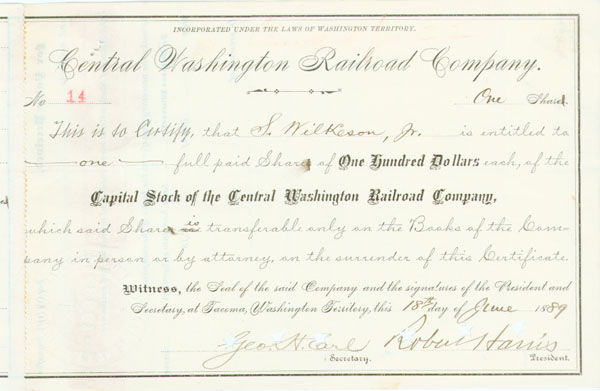 INCORPORATED UNDER THE LAWS OF WASHINGTON TERRITORY.
Central Washington Railroad Company.
No 14 One Share
This is to Certify, that S. Wilkeson, Jr. is entitled to
one full paid Share of One Hundred Dollars each, of the
Capital Stock of the Central Washington Railroad Company,
which said Share is transferable only on the Books of the Com-
pany in person or by attorney, on the surrender of this Certificate.
Witness, the Seal of the said Company and the signatures of the President and
Secretary, at Tacoma, Washington Territory, this 18th day of June 1889
Geo. H. Earl Robert Harris
Secretary. President.